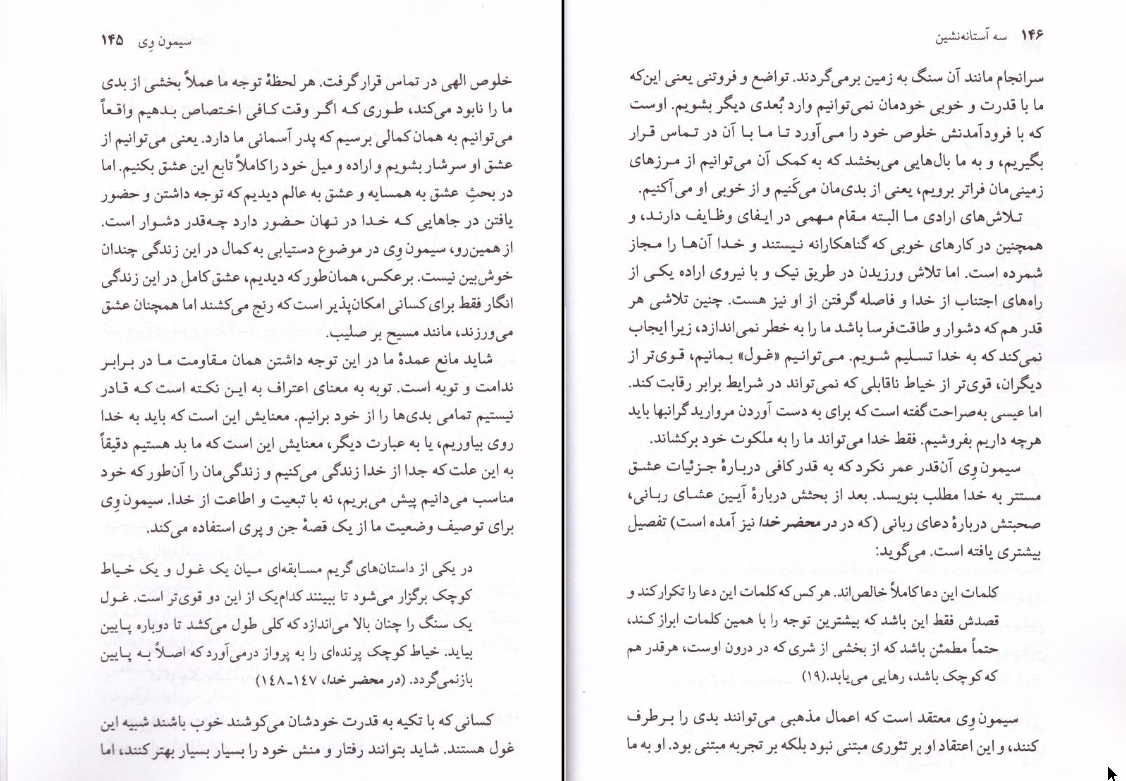 سیمون وِی ۱۴۵
خلوص الهی در تماس قرار گرفت. هر لحظهٔ توجه ما عملاً بخشی از بدی
ما را نابود می‌کند، طوری که اگر وقت کافی اختصاص بدهیم واقعاً
می‌توانیم به همان کمالی برسیم که پدر آسمانی ما دارد. یعنی می‌توانیم از
عشق او سرشار بشویم و اراده و میل خود را کاملاً تابع این عشق بکنیم. اما
در بحثِ عشق به همسایه و عشق به عالم دیدیم که توجه داشتن و حضور
یافتن در جاهایی که خدا در نهان حضور دارد چه‌قدر دشوار است.
از همین‌رو، سیمون وِی در موضوع دستیابی به کمال در این زندگی چندان
خوش‌بین نیست. برعکس، همان‌طور که دیدیم، عشق کامل در این زندگی
انگار فقط برای کسانی امکان‌پذیر است که رنج می‌کشند اما همچنان عشق
می‌ورزند، مانند مسیح بر صلیب.
شاید مانع عمدهٔ ما در این توجه داشتن همان مقاومت ما در برابر
ندامت و توبه است. توبه به معنای اعتراف به این نکته است که قادر
نیستیم تمامی بدی‌ها را از خود برانیم. معنایش این است که باید به خدا
روی بیاوریم، یا به عبارت دیگر، معنایش این است که ما بد هستیم دقیقاً
به این علت که جدا از خدا زندگی می‌کنیم و زندگی‌مان را آن‌طور که خود
مناسب می‌دانیم پیش می‌بریم، نه با تبعیت و اطاعت از خدا. سیمون وِی
برای توصیف وضعیت ما از یک قصهٔ جن و پری استفاده می‌کند.
در یکی از داستان‌های گریم مسابقه‌ای میان یک غول و یک خیاط
کوچک برگزار می‌شود تا ببینند کدام‌یک از این دو قوی‌تر است. غول
یک سنگ را چنان بالا می‌اندازد که کلی طول می‌کشد تا دوباره پایین
بیاید. خیاط کوچک پرنده‌ای را به پرواز درمی‌آورد که اصلاً به پایین
بازنمی‌گردد. (در محضر خدا، ۱۴۷-۱۴۸)
کسانی که با تکیه به قدرت خودشان می‌کوشند خوب باشند شبیه این
غول هستند. شاید بتوانند رفتار و منش خود را بسیار بسیار بهتر کنند، اما
۱۴۶ سه آستانه‌نشین
سرانجام مانند آن سنگ به زمین برمی‌گردند. تواضع و فروتنی یعنی این‌که
ما با قدرت و خوبی خودمان نمی‌توانیم وارد بُعدی دیگر بشویم. اوست
که با فرودآمدنش خلوص خود را می‌آورد تا ما با آن در تماس قرار
بگیریم، و به ما بال‌هایی می‌بخشد که به کمک آن می‌توانیم از مرزهای
زمینی‌مان فراتر برویم، یعنی از بدی‌مان می‌کَنیم و از خوبی او می‌آکنیم.
تلاش‌های ارادی ما البته مقام مهمی در ایفای وظایف دارند، و
همچنین در کارهای خوبی که گناهکارانه نیستند و خدا آن‌ها را مجاز
شمرده است. اما تلاش ورزیدن در طریق نیک و با نیروی اراده یکی از
راه‌های اجتناب از خدا و فاصله گرفتن از او نیز هست. چنین تلاشی هر
قدر هم که دشوار و طاقت‌فرسا باشد ما را به خطر نمی‌اندازد، زیرا ایجاب
نمی‌کند که به خدا تسلیم شویم. می‌توانیم «غول» بمانیم، قوی‌تر از
دیگران، قوی‌تر از خیاط ناقابلی که نمی‌تواند در شرایط برابر رقابت کند.
اما عیسی به‌صراحت گفته است که برای به دست آوردن مروارید گرانبها باید
هرچه داریم بفروشیم. فقط خدا می‌تواند ما را به ملکوت خود برکشاند.
سیمون وِی آن‌قدر عمر نکرد که به قدر کافی دربارهٔ جزئیات عشق
مستتر به خدا مطلب بنویسد. بعد از بحثش دربارهٔ آیین عشای ربانی،
صحبتش دربارهٔ دعای ربانی (که در در محضر خدا نیز آمده است) تفصیل
بیشتری یافته است. می‌گوید:
کلمات این دعا کاملاً خالص‌اند. هر کس که کلمات این دعا را تکرار کند و
قصدش فقط این باشد که بیشترین توجه را با همین کلمات ابراز کند،
حتماً مطمئن باشد که از بخشی از شری که در درون اوست، هرقدر هم
که کوچک باشد، رهایی می‌یابد.(۱۹)
سیمون وِی معتقد است که اعمال مذهبی می‌توانند بدی را برطرف
کنند، و این اعتقاد او بر تئوری مبتنی نبود بلکه بر تجربه مبتنی بود. او به ما